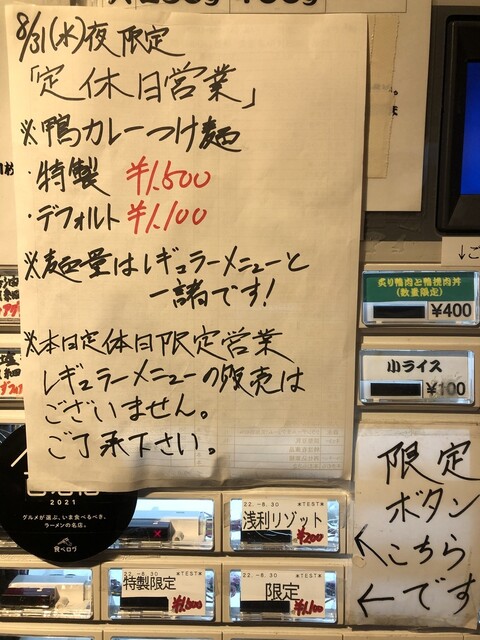 8/31(水)夜限定
「定休日営業」
※鴨カレーつけ麺
・特製 ¥1,500
・デフォルト ¥1,100
※麺量はレギュラーメニューと
一諸です!
※本日定休日限定営業
レギュラーメニューの販売は
ございません。
ご了承下さい。
↓ご
炙り鴨肉と鴨挽肉丼
(数量限定)
¥400
小ライス
¥100
限定
ボタン
←こちら
←です
2021
グルメが選ぶ、いま食べるべき、
ラーメンの名店。
食べログ
22.-8.30 *TEST*
浅利リゾット
¥200
22.-8.30 *TEST*
特製限定
¥1,500
22.-8.30 *TEST*
限定
¥1,100